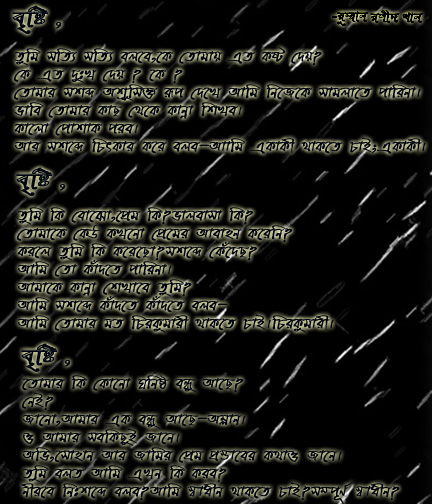 বৃষ্টি,
-নুসরাত রশীদ খান
তুমি সত্যি সত্যি বলবে,কে তোমায় এত কষ্ট দেয়?
কে এত দুঃখ দেয় ? কে ?
তোমার সশব্দ অশ্রুসিক্ত রূপ দেখে আমি নিজেকে সামলাতে পারিনা।
ভাবি তোমার কাছ থেকে কান্না শিখব।
কালো পোশাক পরব।
আর সশব্দে চিৎকার করে বলব-আমি একাকী থাকতে চাই;একাকী।
বৃষ্টি,
তুমি কি বোঝো,প্রেম কি?ভালবাসা কি?
তোমাকে কেউ কখনো প্রেমের আবাহন করেনি?
করলে তুমি কি করেছো?সশব্দে কেঁদেছ?
আমি তো কাঁদতে পারিনা।
আমাকে কান্না শেখাবে তুমি?
আমি সশব্দে কাঁদতে কাঁদতে বলব-
আমি তোমার মত চিরকুমারী থাকতে চাই।চিরকুমারী।
বৃষ্টি,
তোমার কি কোনো ঘনিষ্ঠ বন্ধু আছে?
নেই?
জানো,আমার এক বন্ধু আছে-অম্লান।
ও আমার সবকিছুই জানে।
অভি,সোহান আর জামির প্রেম প্রস্তাবের কথাও জানে।
তুমি বলত আমি এখন কি করব?
নীরবে নিঃশব্দে বলব?আমি স্বাধীন থাকতে চাই?সম্পূর্ণ স্বাধীন?